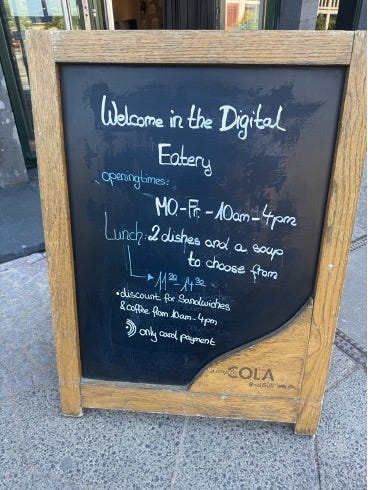 Welcome in the Digital
Eatery
openingtimes:
MO-Fr. -10am-4pm
Lunch: 2 dishes and a soup
to choose from
11³⁰-14³⁰
• discount for Sandwiches
& coffee from 10am-4pm
only card payment
COLA
Red Bull